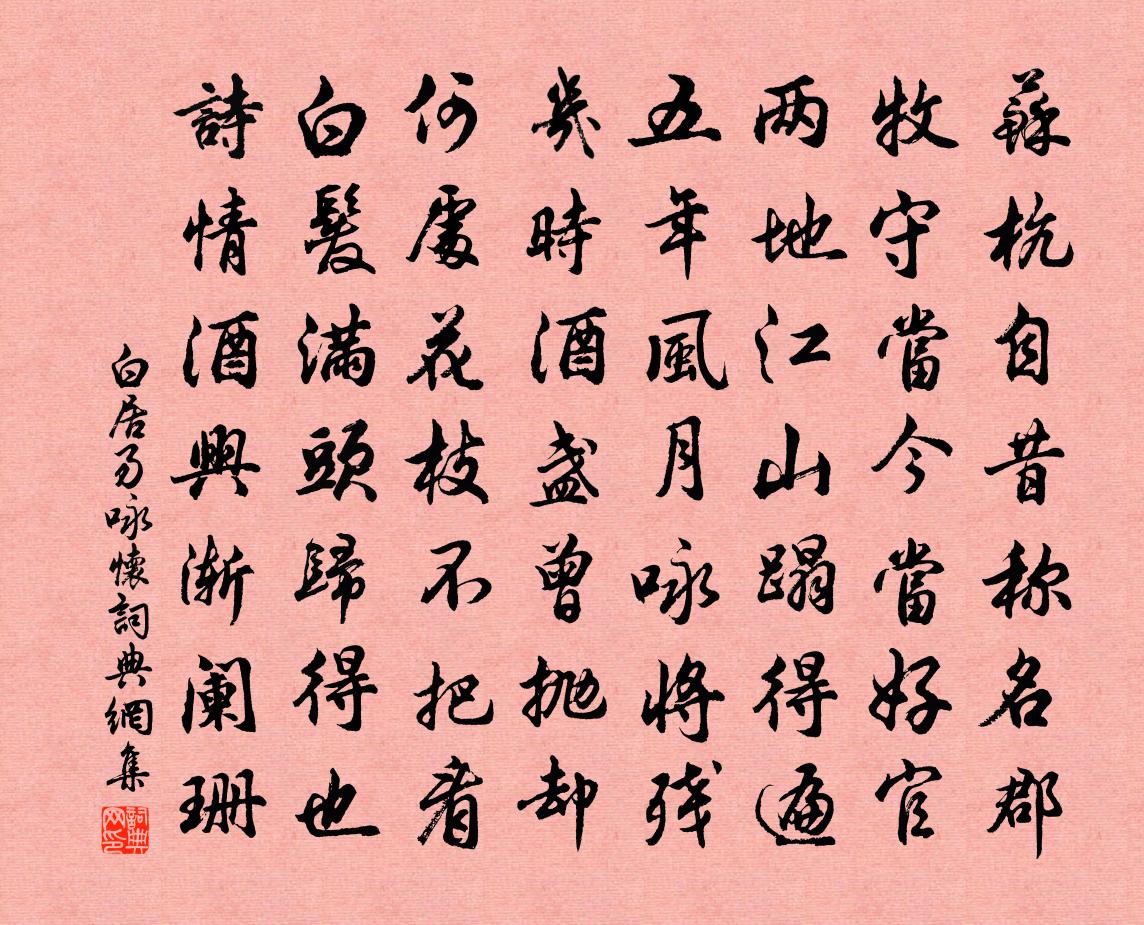 蘇杭自昔称名郡
牧守當今當好官
两地江山蹋得遍
五年風月咏將残
幾時酒盏曾抛却
何處花枝不把看
白髮滿頭歸得也
詩情酒興漸阑珊
白居易咏懷詞典網集
詞典网印